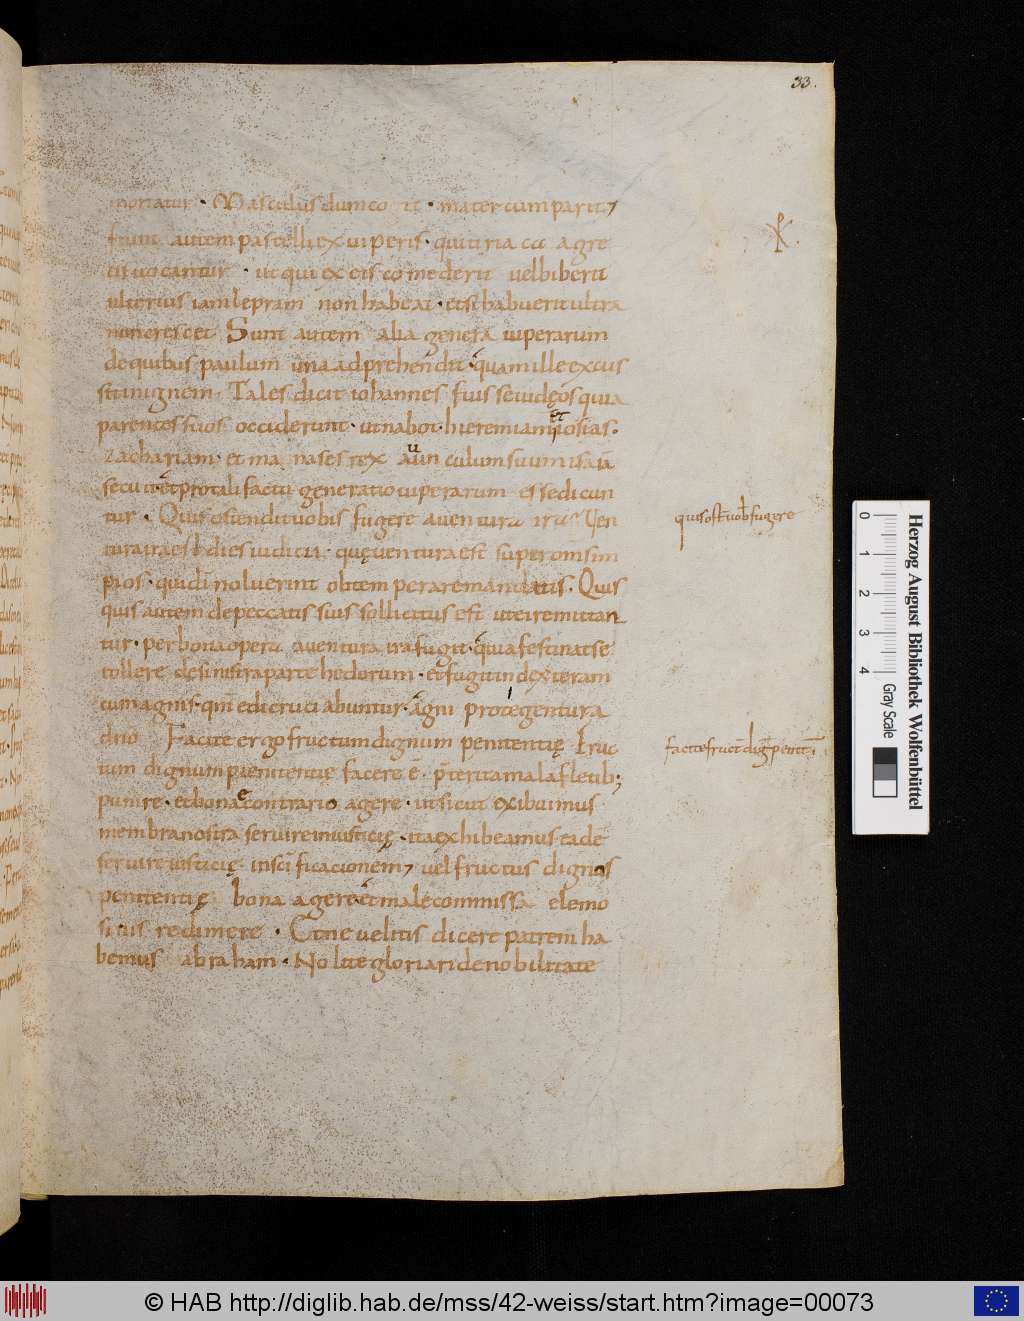 33.
moriatur · Masculus dum co it · mater cum parit;
fiunt autem pastelli ex uiperis · qui tiriacæ agre
ci uocantur · ut qui ex eis comederit uel biberit
ulterius iam lepram non habeat · et si habuerit ultra
non crescet Sunt autem alia genera uiperarum
de quibus paulum una adprehendit · quam ille excus
sit in ignem · Tales dicit iohannes fuisse iudęos quia
parentes suos occiderunt · ut nabot · hieremiam et iosias.
Zachariam · et manases rex auunculum suum isaiā
secuti · et pro tali factu generatio uiperarum esse dicun
tur · Quis ostendit uobis fugere a uentura ira? Uen
tura ira est dies iudicii · quę uentura est super om̄s im
pios · qui dī noluerint obtemperare mandatis · Quis
quis autem de peccatis suis sollicitus est ut ei remittan
tur · per bona opera a uentura ira fugit · quia festinat se
tollere de sinistra parte hedorum · et fugit in dexteram
cum agnis · qm̄ edi cruciabuntur · agni protegentur a
dno Facite ergo fructum dignum penitentię Fruc
tum dignum pęnitentię facere ē · p̄terita mala fletib;
punire · et bona e contrario agere · ut sicut exibuimus
membra nostra seruire iniusticię · ita exhibeamus eadē
seruire iusticię · in sc̄ificacionem; uel fructus dignos
penitentię bona agere et male commissa elemo
sinis redimere · Et ne uelitis dicere patrem ha
bemus abraham · Nolite gloriari de nobilitate
quis ost̄ uob fugere
facite fruct̄ dignū penit̄
0
1
2
3
4
Herzog August Bibliothek Wolfenbüttel
Gray Scale
© HAB http://diglib.hab.de/mss/42-weiss/start.htm?image=00073